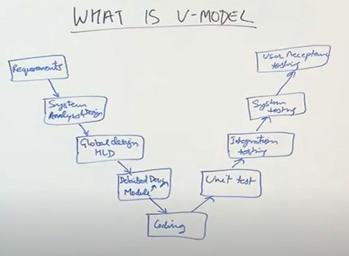 WHAT IS V-MODEL
Requirements
System
Analysis Design
Global design
HLD
Detailed Design
Module
Coding
Unit test
Integration
testing
System
testing
User Acceptance
testing